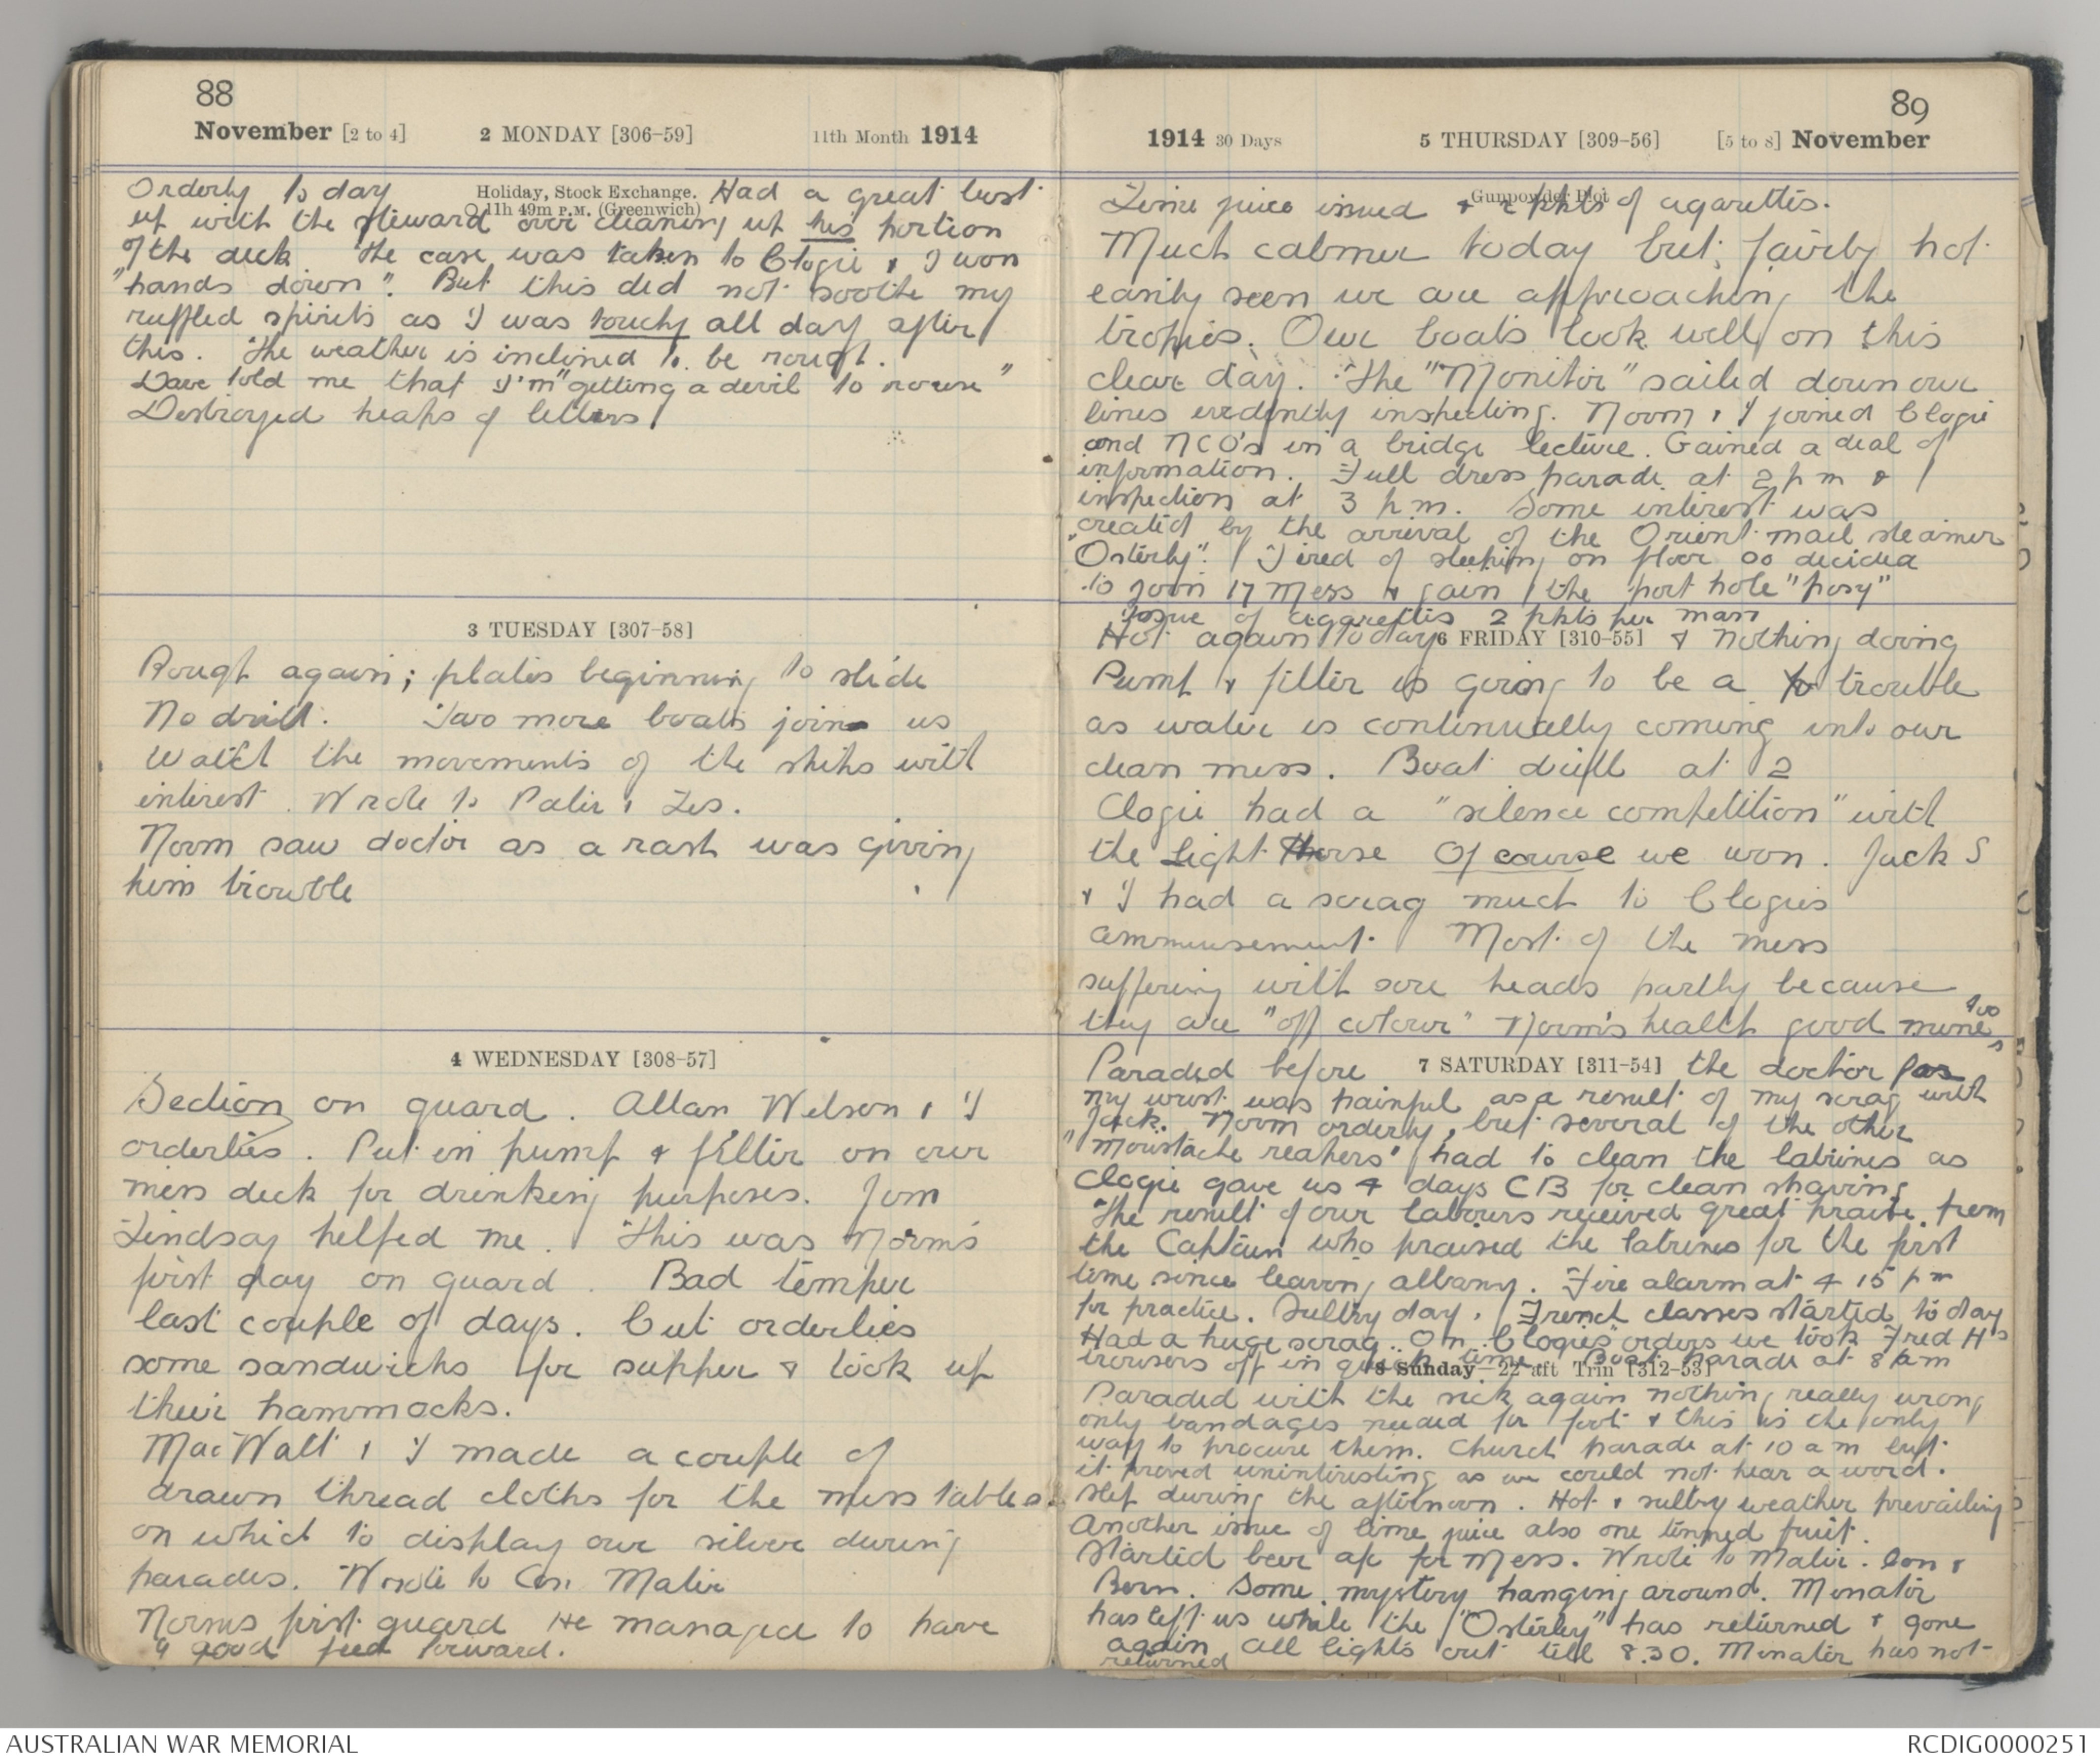 88
November [2 to 4] 2 MONDAY [306-59] 11th Month 1914
Orderly to day Holiday, Stock Exchange. Had a great bust
11h 49m P.M. (Greenwich)
up with the steward over cleaning up his portion
of the deck The case was taken to Clogie & I won
"hands down". But this did not soothe my
ruffled spirits as I was touchy all day after
this. The weather is inclined to be rough.
Dave told me that I'm "getting a devil to rouse"
Destroyed heaps of letters
3 TUESDAY [307-58]
Rough again; plates beginning to slide
No drill. Two more boats join us
Watch the movements of the ships with
interest. Wrote to Pater & Les.
Norm saw doctor as a rash was giving
him trouble
4 WEDNESDAY [308-57]
Section on guard. Allan Wilson & I
orderlies. Put in pump & filter on our
mess deck for drinking purposes. Jom
Lindsay helped me. This was Norm's
first day on guard. Bad temper
last couple of days. Cut orderlies
some sandwichs for supper & took up
their hammocks.
Mac Walt & I made a couple of
drawn thread cloths for the mess tables
on which to display our silver during
parades. Wrote to Con. Mater
Norms first guard He managed to have
a good feed forward.
89
1914 30 Days 5 THURSDAY [309-56] [5 to 8] November
Gunpowder Plot
Lime juice issued & 2 pkts of cigarettes.
Much calmer today but, fairly hot
easily seen we are approaching the
tropics. Our boats look well on this
clear day. The "Monitor" sailed down our
lines evidently inspecting. Norm & I joined Clogie
and NCO's in a bridge lecture. Gained a deal of
information. Full dress parade at 2 pm &
inspection at 3 pm. Some interest was
created by the arrival of the Orient mail steamer
"Osterly". Tired of sleeping on floor so decided
to join 17 Mess & gain the port hole "posy"
Issue of cigarettes 2 pkts per man
Hot again today 6 FRIDAY [310-55] & nothing doing
Pump & filter is going to be a trouble
as water is continually coming into our
clean mess. Boat drill at 2
Clogie had a "silence competition" with
the Light Horse Of course we won. Jack S
& I had a scrag much to Clogies
ammusement. Most of the mess
suffering with sore heads partly because
they are "off colour" Norm's health good mine too
Paraded before 7 SATURDAY [311-54] the doctor for
my wrist was painful as a result of my scrag with
Jack. Norm orderly, but several of the other
"moustache reapers" had to clean the latrines as
Clogie gave us 4 days CB for clean shaving
The result of our labours received great praise from
the Captain who praised the latrines for the first
time since leaving albany. Fire alarm at 4 15 pm
for practice. Sultry day. French classes started to day
Had a huge scrag. On Clogies orders we took Fred H's
trousers off in quick time. Boat parade at 8 am
8 Sunday—22 aft Trin [312-53]
Paraded with the sick again nothing really wrong
only bandages needed for foot & this is the only
way to procure them. Church parade at 10 a m but
it proved uninteresting as we could not hear a word.
Slep during the afternoon. Hot & sultry weather prevailing
Another issue of lime juice also one tinned fruit.
Started beer a/c for Mess. Wrote to Mater. Con &
Bern. Some mystery hanging around. Minator
has left us while the "Osterley" has returned & gone
again all lights out till 8.30. Minator has not
returned
AUSTRALIAN WAR MEMORIAL
RCDIG0000251